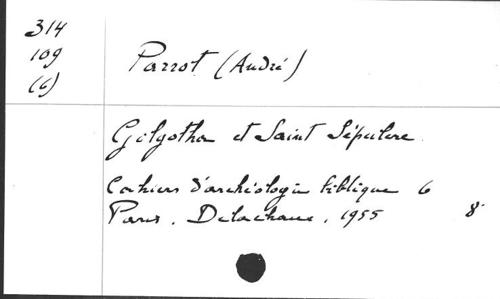 314
109
(6)
Parrot (André)
Golgotha et Saint Sépulcre
Cahiers d'archéologie biblique 6
Paris, Delachaux, 1955 8°